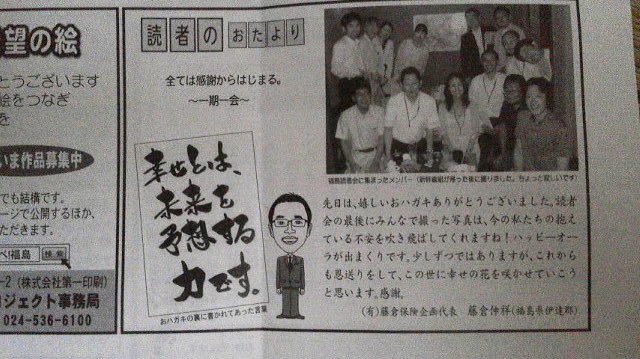 望の絵
とうございます
絵をつなぎ
を
いま作品募集中
でも結構です。
ージで公開するほか、
ただきます。
ベ!福島 検索
-2(株式会社第一印刷)
ロジェクト事務局
024-536-6100
読者のおたより
全ては感謝からはじまる。
〜一期一会〜
幸せとは、
未来を
予想する
力です。
おハガキの裏に書かれてあった言葉
福島読者会に集まったメンバー(新幹線組が帰った後に撮りました。ちょっと寂しいです)
先日は、嬉しいおハガキありがとうございました。読者
会の最後にみんなで撮った写真は、今の私たちの抱え
ている不安を吹き飛ばしてくれますね!ハッピーオー
ラが出まくりです。少しずつではありますが、これから
も恩送りをして、この世に幸せの花を咲かせていこう
と思います。感謝。
(有)藤倉保険企画代表 藤倉伸祥(福島県伊達郡)